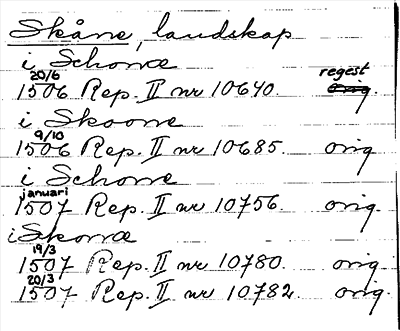 Skåne, landskap
i Schonæ
20/6 regest
1506 Rep. II nr 10640. orig.
i Skoone
9/10
1506 Rep. II nr 10685. orig
i Schone
januari
1507 Rep. II nr 10756. orig.
i Skonæ
19/3
1507 Rep. II nr 10780. orig.
20/3
1507 Rep. II nr 10782. orig.